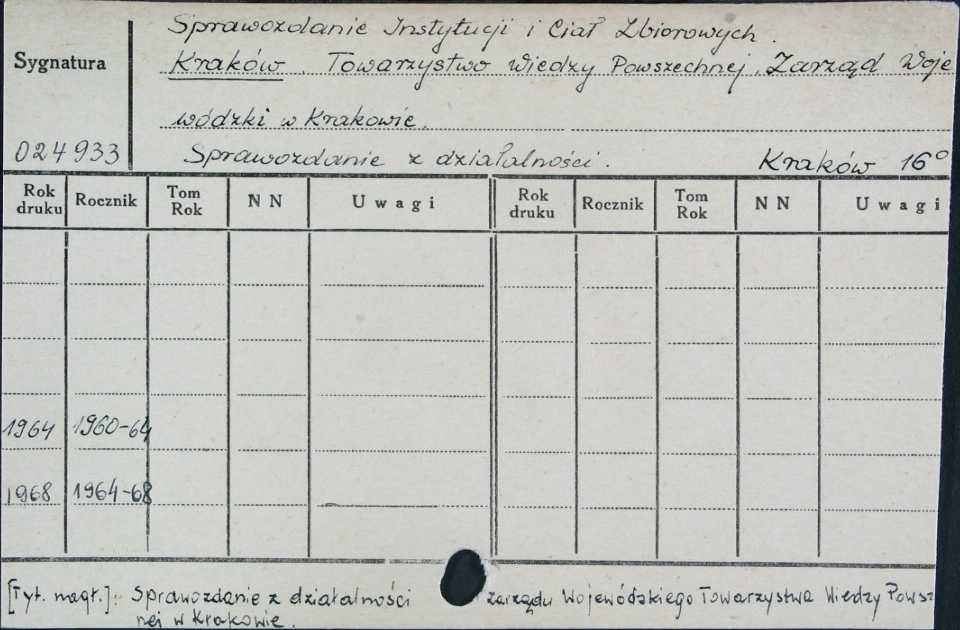 Sprawozdanie Instytucji i Ciał Zbiorowych.
Sygnatura
Kraków. Towarzystwo Wiedzy Powszechnej. Zarząd Woje
wódzki w Krakowie.
024933
Sprawozdanie z działalności. Kraków 16°
Rok druku Rocznik Tom Rok NN Uwagi Rok druku Rocznik Tom Rok NN Uwagi
1964 1960-64
1968 1964-68
[Tyt. nagł.]: Sprawozdanie z działalności zarządu Wojewódzkiego Towarzystwa Wiedzy Powsz
nej w Krakowie.